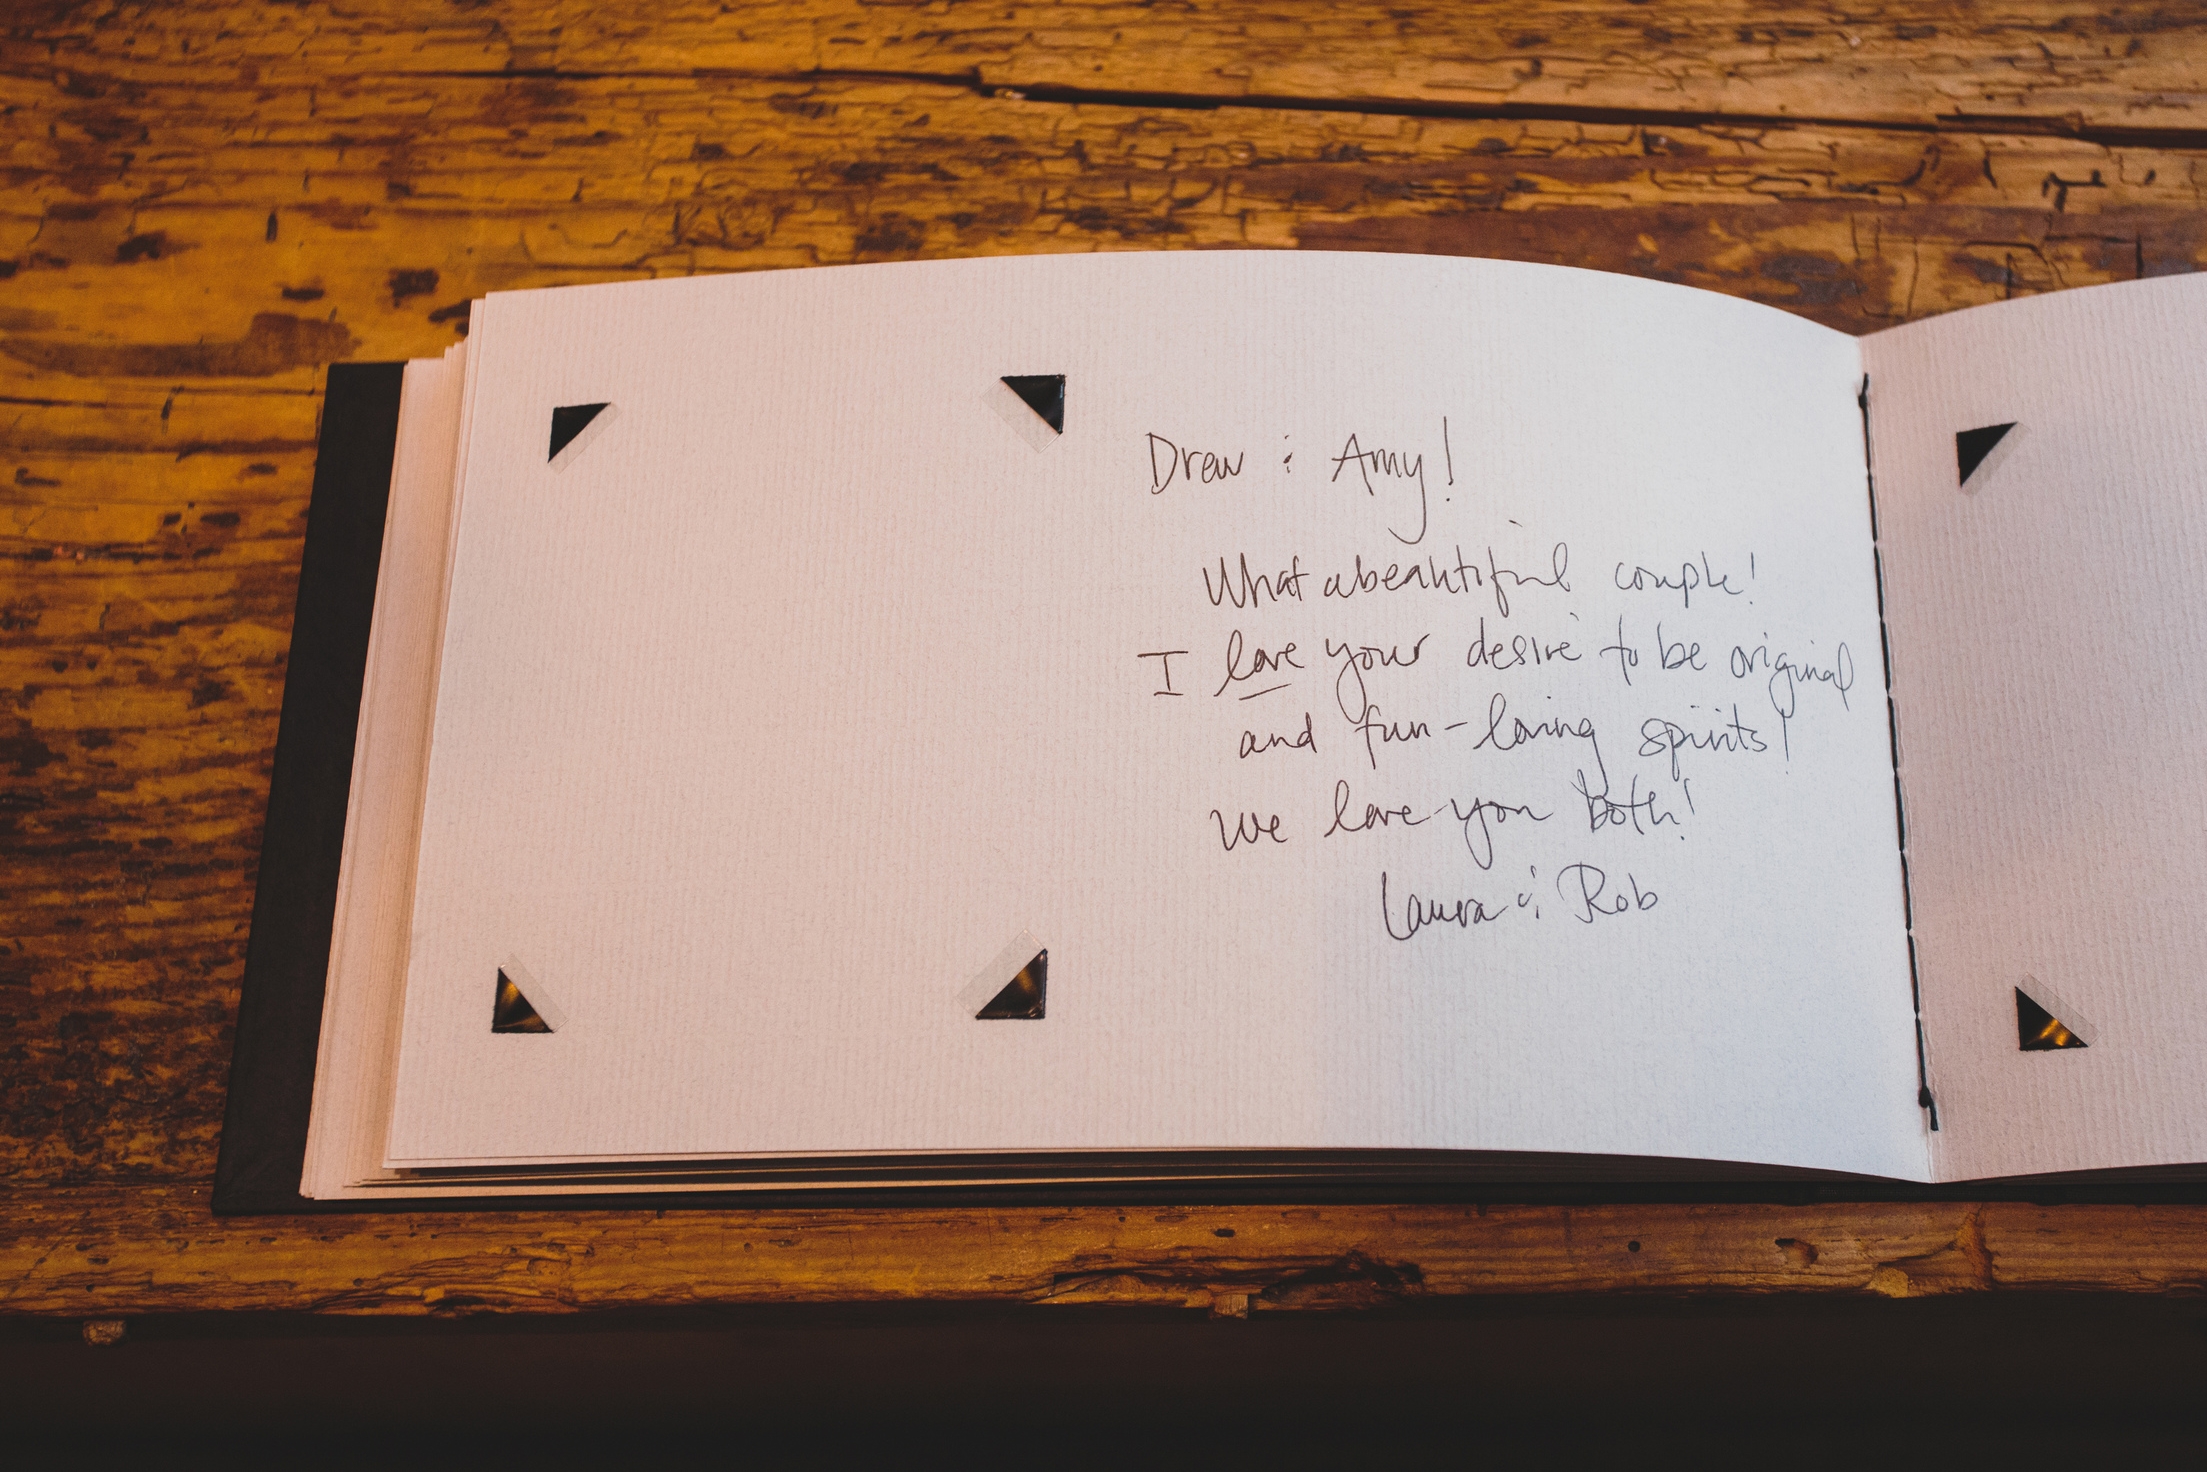 Drew & Amy!
What a beautiful couple!
I love your desire to be original
and fun-loving spirits!
We love you both!
Laura & Rob